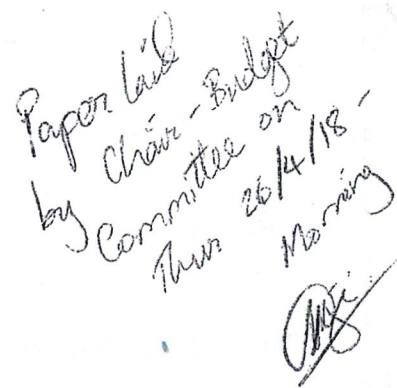 Paper laid
by Chair - Budget
Committee on
Thur 26/4/18 -
Morning